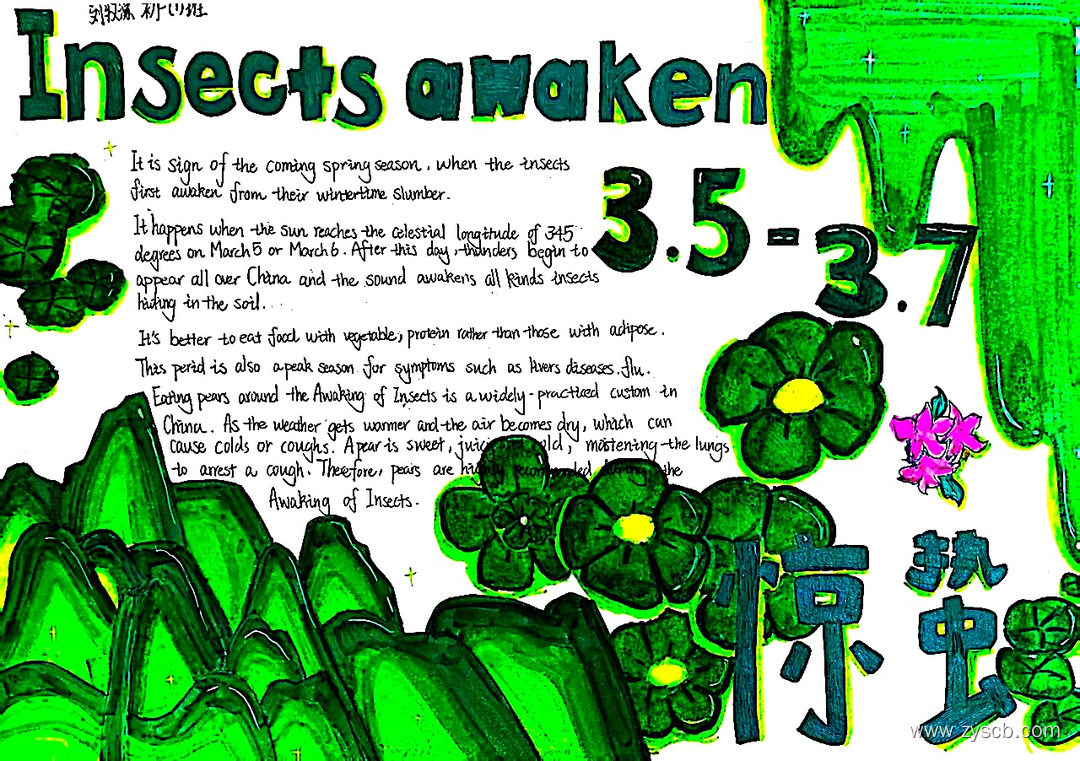 Insects awaken
It is sign of the coming spring season, when the insects
first awaken from their wintertime slumber.
3.5-3.7
It happens when the sun reaches the celestial longitude of 345
degrees on March 5 or March 6. After this day, thunders begin to
appear all over China and the sound awakens all kinds insects
hiding in the soil.
It's better to eat food with vegetable, protein rather than those with adipose.
This period is also a peak season for symptoms such as livers diseases, flu.
Eating pears around the Awaking of Insects is a widely-practiced custom in
China. As the weather gets warmer and the air becomes dry, which can
cause colds or coughs. A pear is sweet, moistening the lungs
to arrest a cough. Therefore, pears are the
Awaking of Insects.
惊蛰
www.zyscb.com